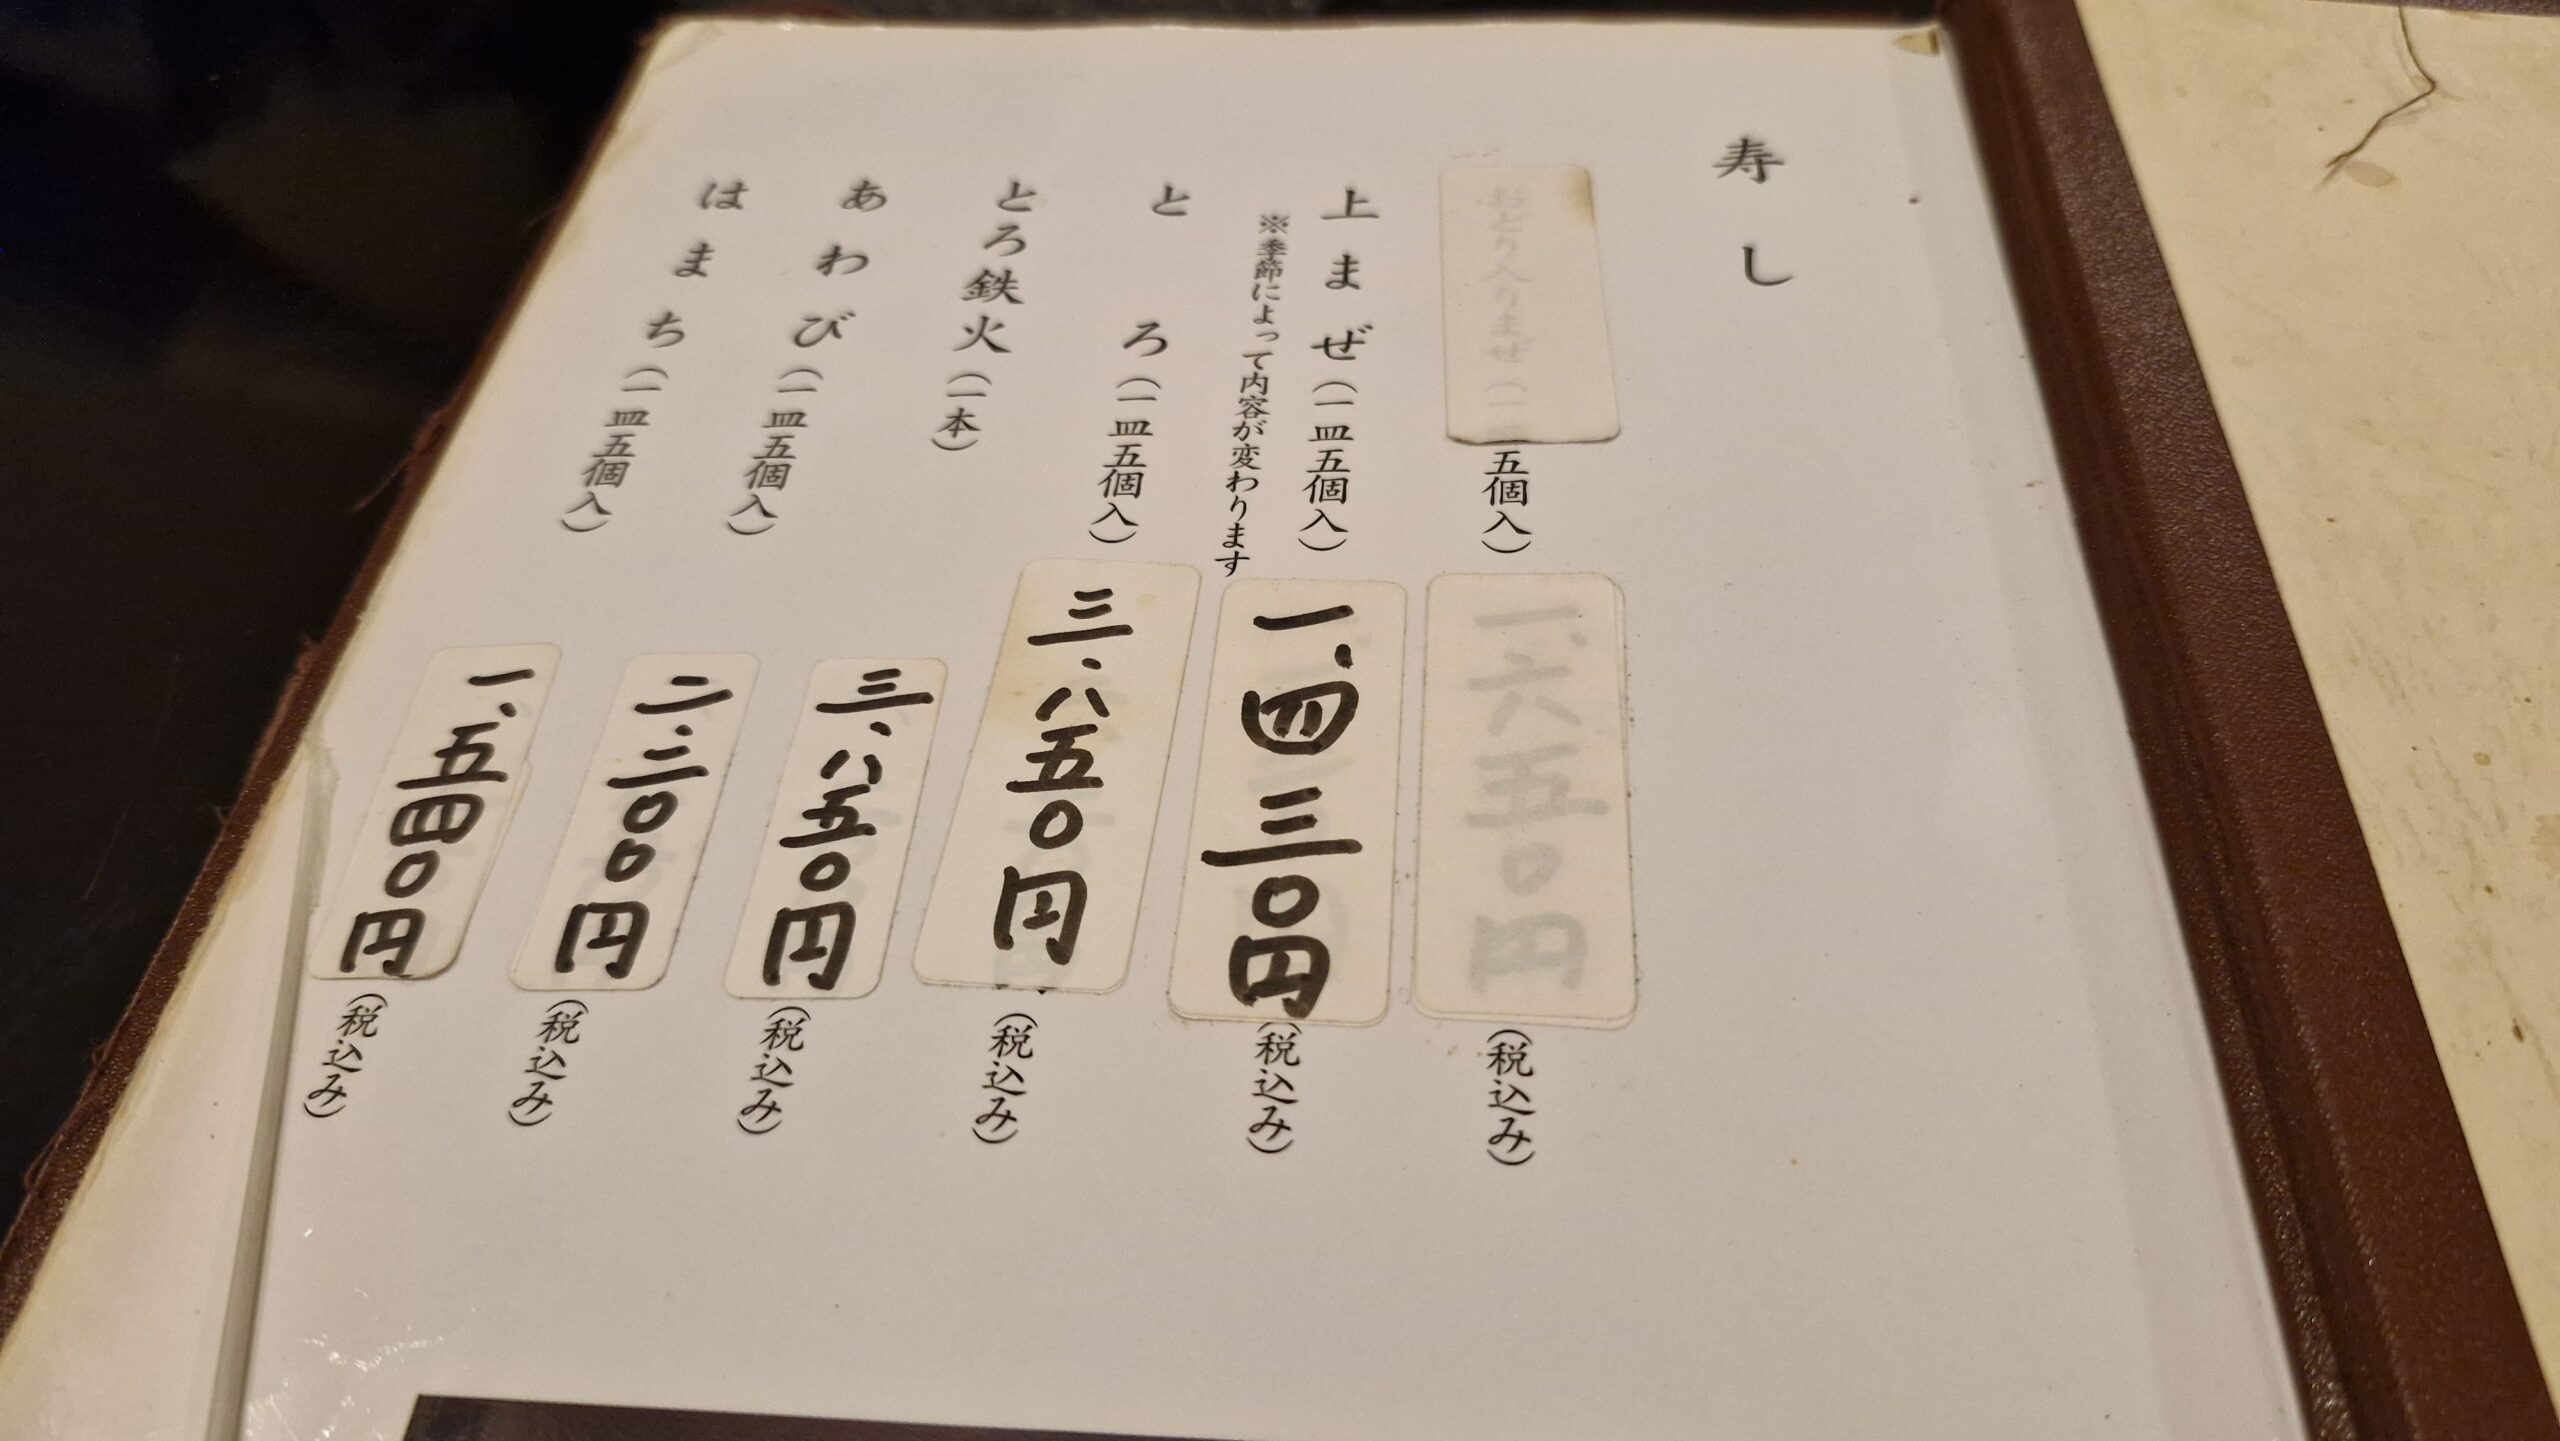 寿し
おどり入りまぜ（一皿五個入） 一、六五〇円 （税込み）
上まぜ（一皿五個入） 一、四三〇円 （税込み）
※季節によって内容が変わります
とろ（一皿五個入） 三、八五〇円 （税込み）
とろ鉄火（一本） 三、八五〇円 （税込み）
あわび（一皿五個入） 二、三〇〇円 （税込み）
はまち（一皿五個入） 一、五四〇円 （税込み）